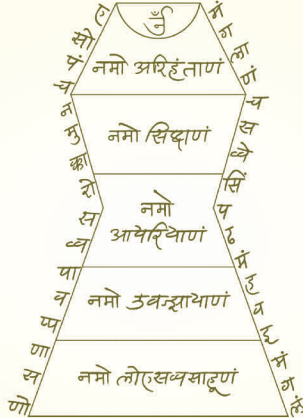 ॐ
नमो अरिहंताणं
नमो सिद्धाणं
नमो
आयरियाणं
नमो उवज्झायाणं
नमो लोएसव्वसाहूणं
एसो पंच नमुक्कारो सव्व पावप्पणासणो
मंगलाणं च सव्वेसिं पढमं हवइ मंगलं